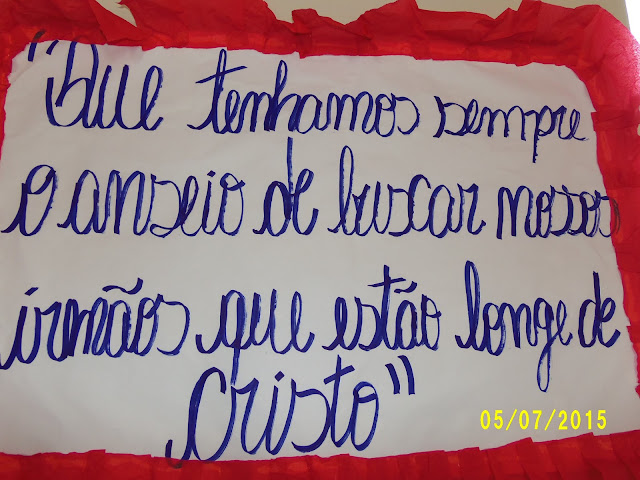 "Que tenhamos sempre
o anseio de buscar nossos
irmãos que estão longe de
Cristo"
05/07/2015